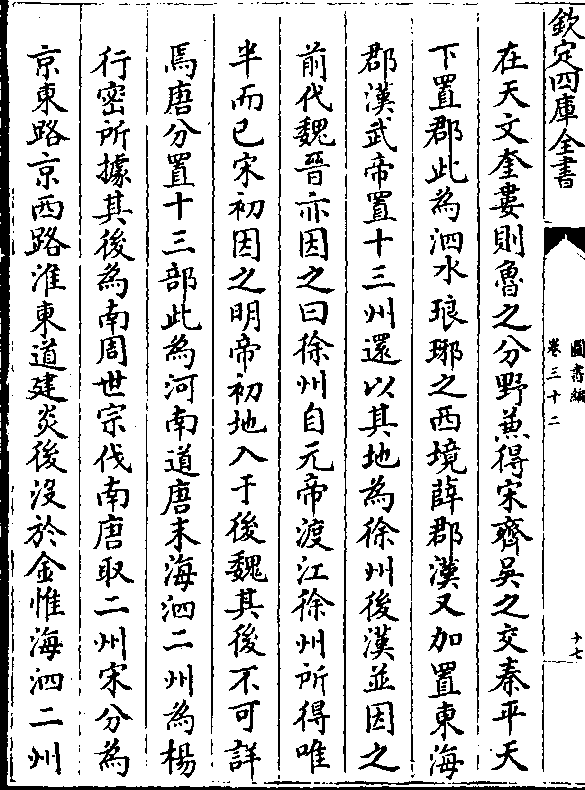 欽定四庫全書
圖書編
卷三十二
十七
在天文奎婁則魯之分野兼得宋齊吳之交秦平天
下置郡此為泗水琅琊之西境薛郡漢又加置東海
郡漢武帝置十三州還以其地為徐州後漢並因之
前代魏晉亦因之曰徐州自元帝渡江徐州所得唯
半而已宋初因之明帝初地入于後魏其後不可詳
焉唐分置十三部此為河南道唐末海泗二州為楊
行密所據其後為南周世宗伐南唐取二州宋分為
京東路京西路淮東道建炎後沒於金惟海泗二州